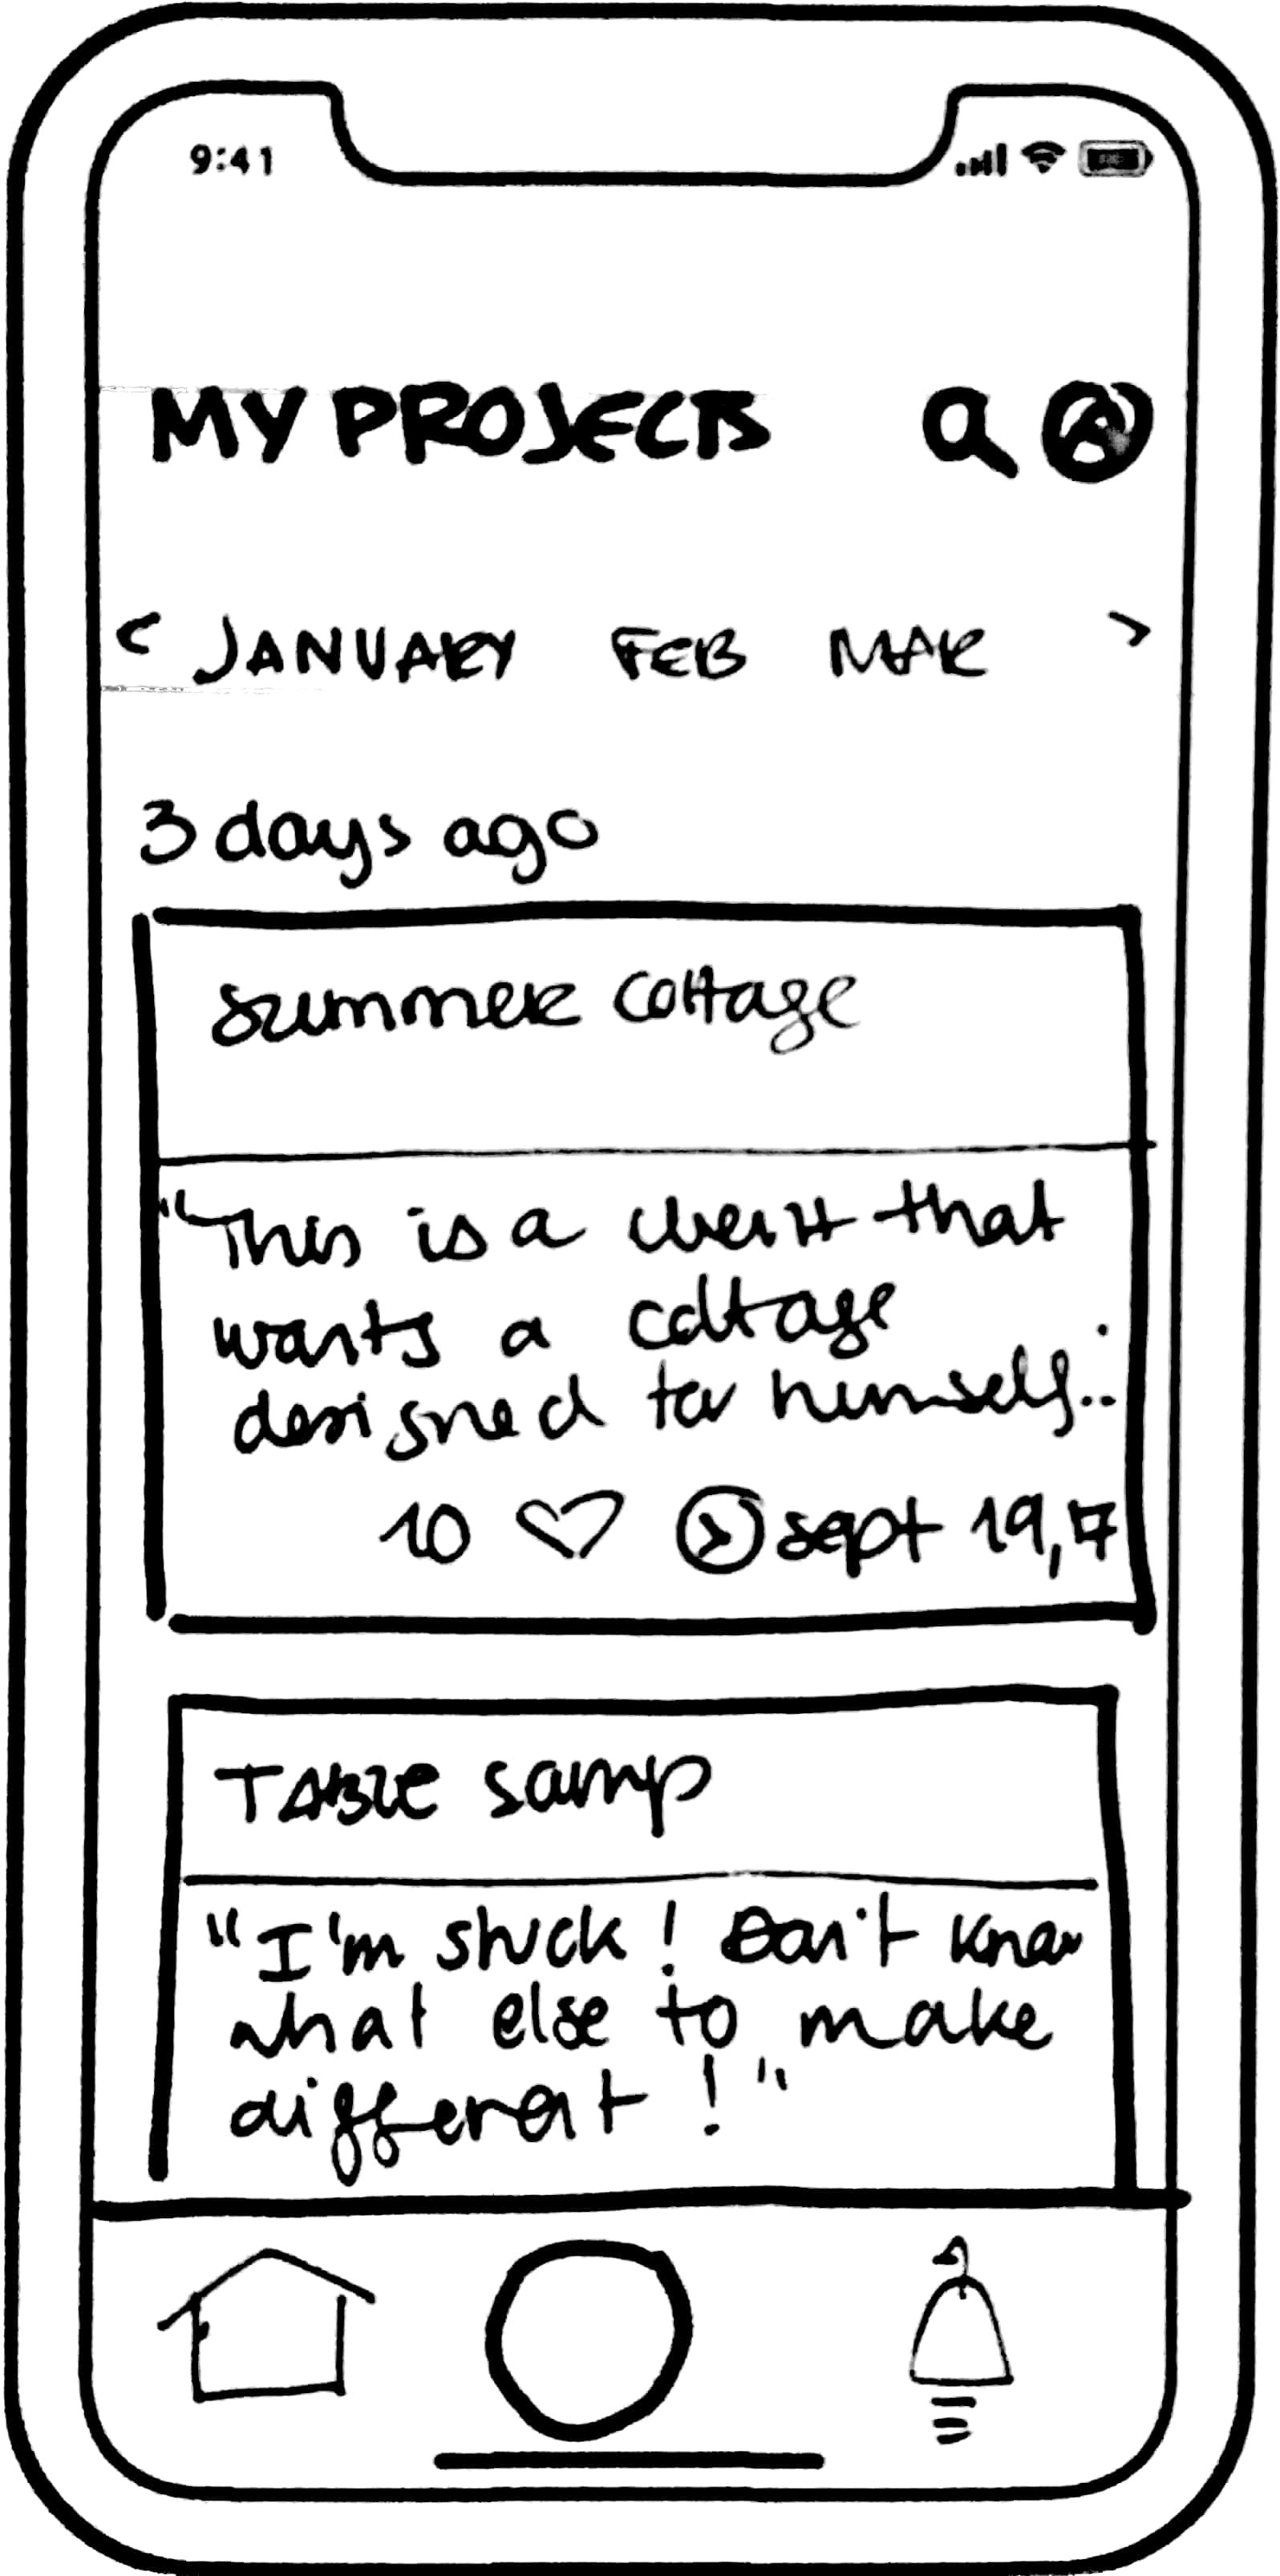 9:41
MY PROJECTS
< JANUARY FEB MAR >
3 days ago
summer cottage
"This is a client that
wants a cottage
designed for himself...
10 sept 19, 17
TABLE samp
"I'm stuck! Don't know
what else to make
different!"